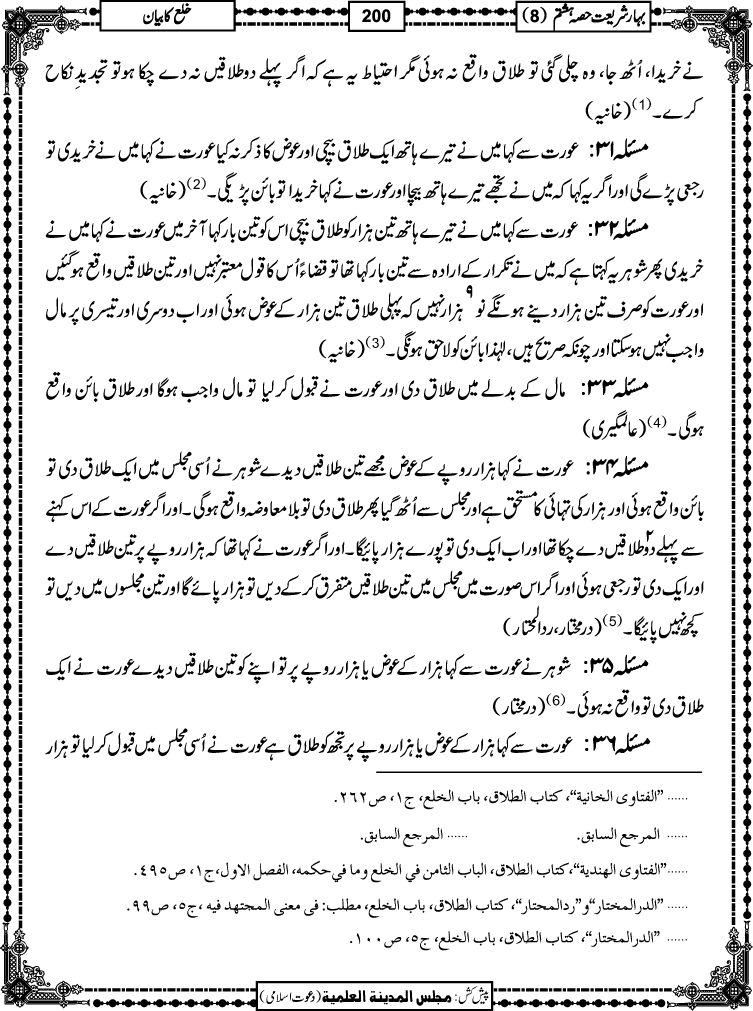 بہار شریعت حصہ ہشتم (8)
200
خلع کا بیان
نے خریدا، اُٹھ جا، وہ چلی گئی تو طلاق واقع نہ ہوئی مگر احتیاط یہ ہے کہ اگر پہلے دو طلاقیں نہ دے چکا ہو تو تجدیدِ نکاح
کرے۔(1) (خانیہ)
مسئلہ ۳۱: عورت سے کہا میں نے تیرے ہاتھ ایک طلاق بیچی اور عوض کا ذکر نہ کیا عورت نے کہا میں نے خریدی تو
رجعی پڑے گی اور اگر یہ کہا کہ میں نے تجھے تیرے ہاتھ بیچا اور عورت نے کہا خریدا تو بائن پڑیگی۔(2) (خانیہ)
مسئلہ ۳۲: عورت سے کہا میں نے تیرے ہاتھ تین ہزار کو طلاق بیچی اس کو تین بار کہا آخر میں عورت نے کہا میں نے
خریدی پھر شوہر یہ کہتا ہے کہ میں نے تکرار کے ارادہ سے تین بار کہا تھا تو قضاءً اُس کا قول معتبر نہیں اور تین طلاقیں واقع ہو گئیں
اور عورت کو صرف تین ہزار دینے ہونگے نو۹ ہزار نہیں کہ پہلی طلاق تین ہزار کے عوض ہوئی اور اب دوسری اور تیسری پر مال
واجب نہیں ہو سکتا اور چونکہ صریح ہیں، لہٰذا بائن کو لاحق ہونگی۔(3) (خانیہ)
مسئلہ ۳۳: مال کے بدلے میں طلاق دی اور عورت نے قبول کر لیا تو مال واجب ہوگا اور طلاق بائن واقع
ہوگی۔(4) (عالمگیری)
مسئلہ ۳۴: عورت نے کہا ہزار روپے کے عوض مجھے تین طلاقیں دیدے شوہر نے اُسی مجلس میں ایک طلاق دی تو
بائن واقع ہوئی اور ہزار کی تہائی کا مستحق ہے اور مجلس سے اُٹھ گیا پھر طلاق دی تو بلا معاوضہ واقع ہوگی۔ اور اگر عورت کے اس کہنے
سے پہلے دو۲ طلاقیں دے چکا تھا اور اب ایک دی تو پورے ہزار پائیگا۔ اور اگر عورت نے کہا تھا کہ ہزار روپے پر تین طلاقیں دے
اور ایک دی تو رجعی ہوئی اور اگر اس صورت میں مجلس میں تین طلاقیں متفرق کرکے دیں تو ہزار پائے گا اور تین مجلسوں میں دیں تو
کچھ نہیں پائیگا۔(5) (درمختار، ردالمحتار)
مسئلہ ۳۵: شوہر نے عورت سے کہا ہزار کے عوض یا ہزار روپے پر تو اپنے کو تین طلاقیں دیدے عورت نے ایک
طلاق دی تو واقع نہ ہوئی۔(6) (درمختار)
مسئلہ ۳۶: عورت سے کہا ہزار کے عوض یا ہزار روپے پر تجھ کو طلاق ہے عورت نے اُسی مجلس میں قبول کر لیا تو ہزار
...... ”الفتاوی الخانیة“، کتاب الطلاق، باب الخلع، ج١، ص٢٦٢.
...... المرجع السابق. ...... المرجع السابق.
...... ”الفتاوی الهندیة“، کتاب الطلاق، الباب الثامن في الخلع وما في حکمه، الفصل الاول، ج١، ص٤٩٥.
...... ”الدرالمختار“و”ردالمحتار“، کتاب الطلاق، باب الخلع، مطلب: فی معنی المجتهد فیه، ج٥، ص٩٩.
...... ”الدرالمختار“، کتاب الطلاق، باب الخلع، ج٥، ص١٠٠.
پیش کش: مجلس المدینة العلمیة (دعوت اسلامی)